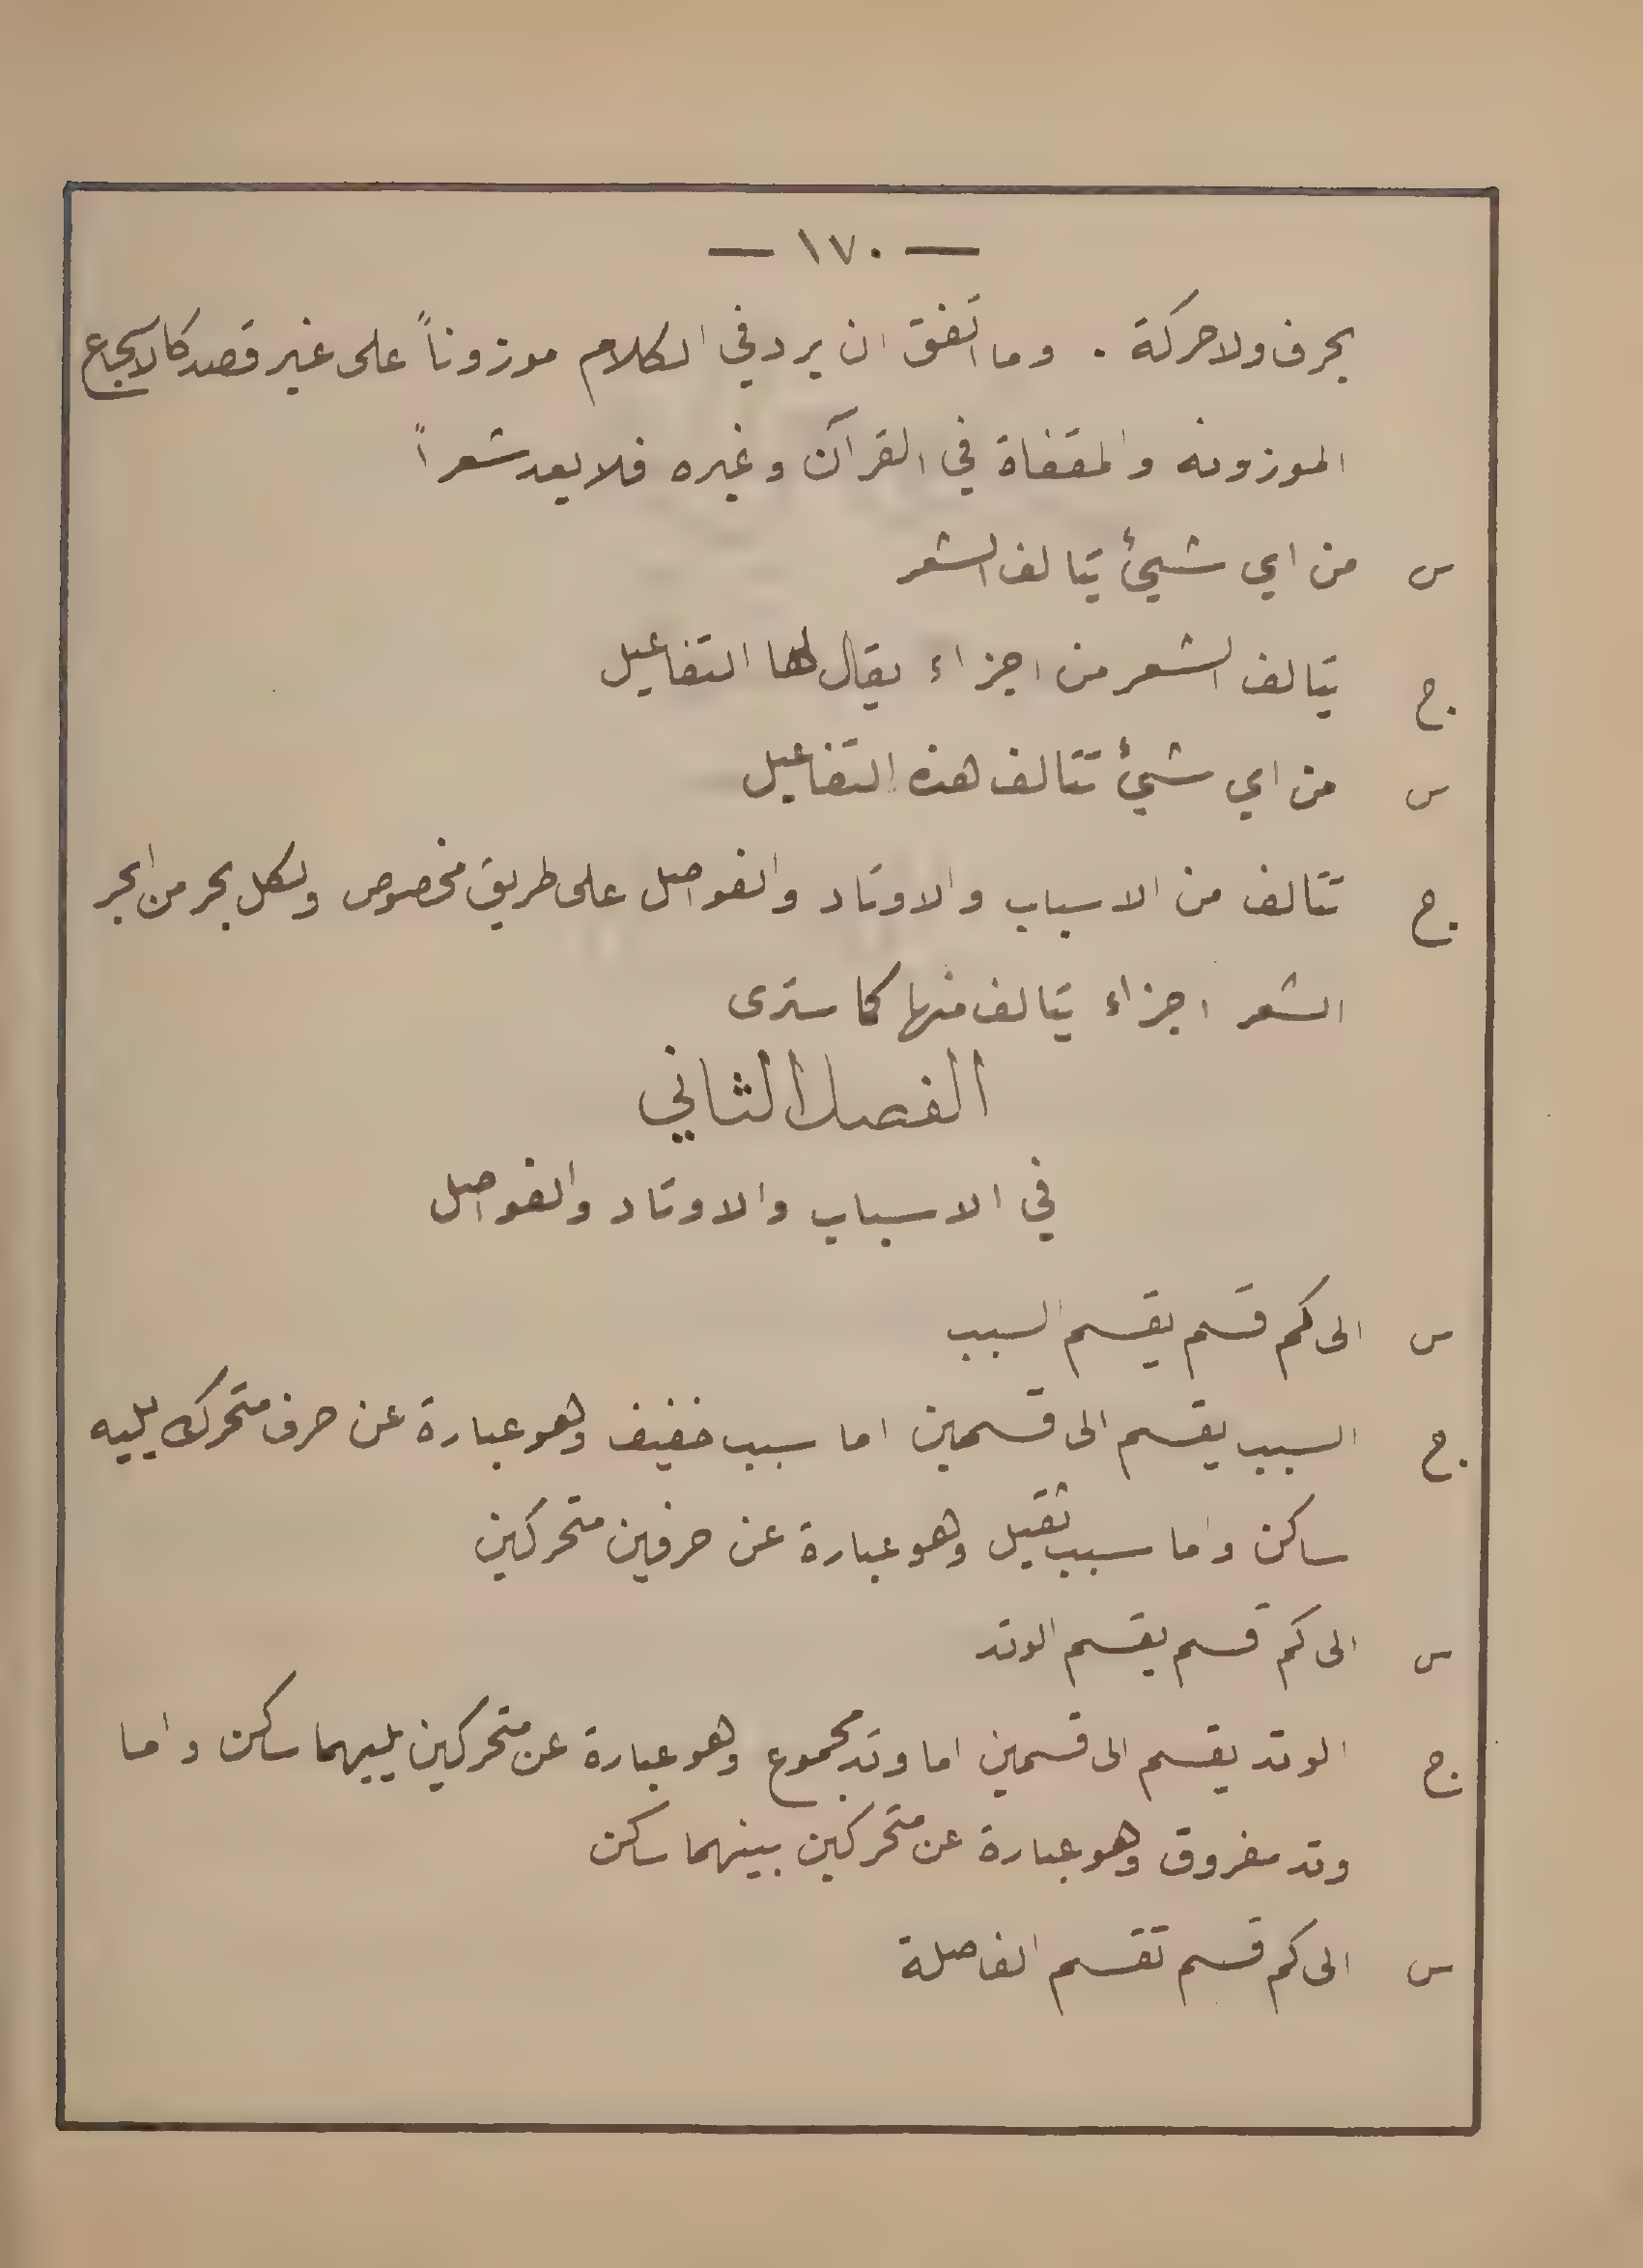 — ١٧٠ —
بحرف ولا حركة . وما اتفق ان يرد في الكلام موزوناً على غير قصد كالاسجاع
الموزونه والمقفاة في القرآن وغيره فلا يعد شعراً
س من اي شيئ يتالف الشعر
ج. يتالف الشعر من اجزاء يقال لها التفاعيل
س من اي شيئ تتالف هذه التفاعيل
ج. تتالف من الاسباب والاوتاد والفواصل على طريق مخصوص ولكل بحر من ابحر
الشعر اجزاء يتالف منها كما سترى
الفصل الثاني
في الاسباب والاوتاد والفواصل
س الى كم قسم يقسم السبب
ج. السبب يقسم الى قسمين اما سبب خفيف وهو عبارة عن حرف متحرك يليه
ساكن واما سبب ثقيل وهو عبارة عن حرفين متحركين
س الى كم قسم يقسم الوتد
ج. الوتد يقسم الى قسمين اما وتد مجموع وهو عبارة عن متحركين يليهما ساكن واما
وتد مفروق وهو عبارة عن متحركين بينهما ساكن
س الى كم قسم تقسم الفاصلة